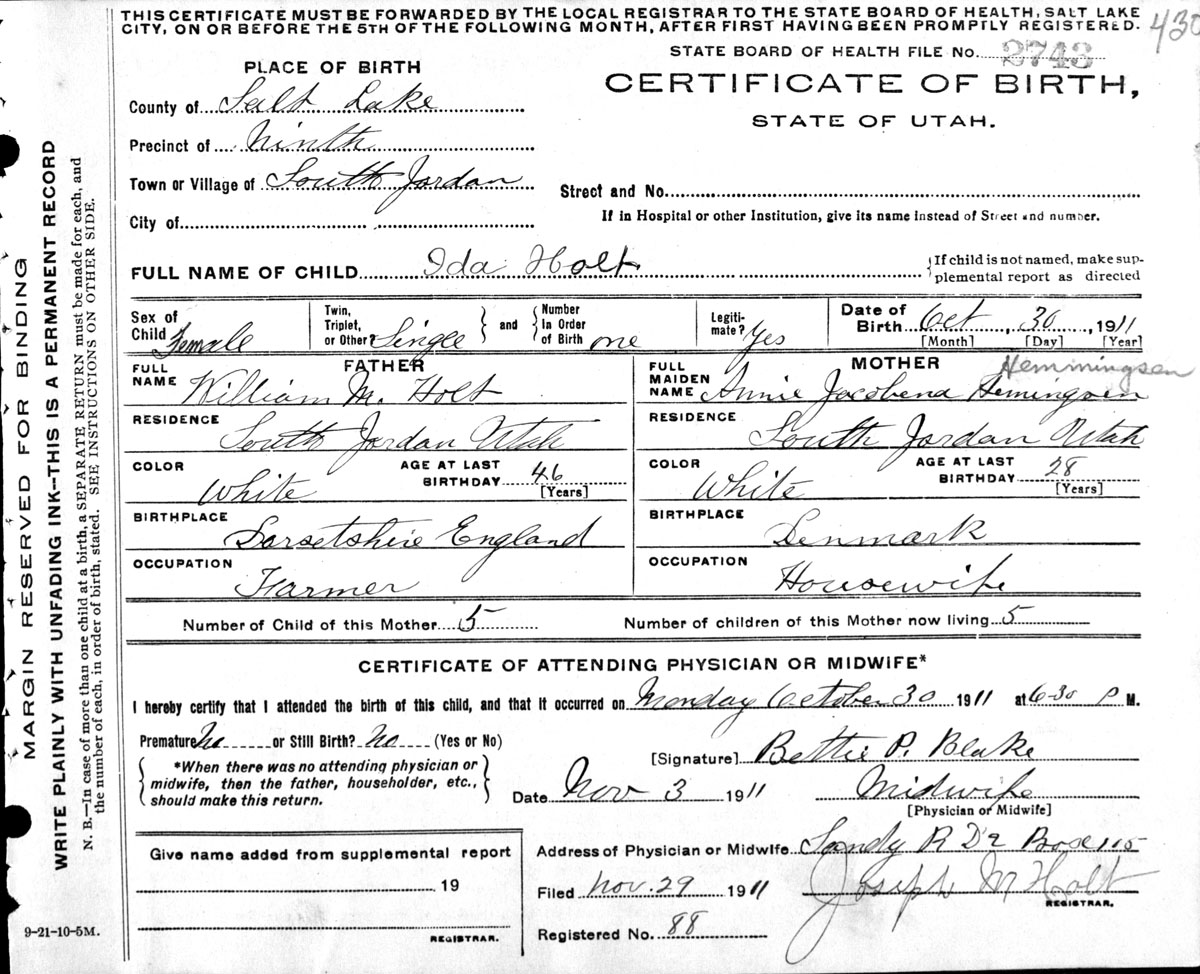 THIS CERTIFICATE MUST BE FORWARDED BY THE LOCAL REGISTRAR TO THE STATE BOARD OF HEALTH, SALT LAKE
CITY, ON OR BEFORE THE 5TH OF THE FOLLOWING MONTH, AFTER FIRST HAVING BEEN PROMPTLY REGISTERED.
430
STATE BOARD OF HEALTH FILE No. 2743
PLACE OF BIRTH
CERTIFICATE OF BIRTH,
STATE OF UTAH.
County of Salt Lake
Precinct of Ninth
Town or Village of South Jordan
Street and No.
City of
If in Hospital or other Institution, give its name instead of Street and number.
FULL NAME OF CHILD Ida Holt
{If child is not named, make sup-
plemental report as directed
Sex of Child Female
Twin, Triplet, or Other? Single
and
Number In Order of Birth one
Legiti-mate? Yes
Date of Birth Oct, 30, 1911
[Month] [Day] [Year]
FATHER
FULL NAME William M. Holt
MOTHER
Hemmingsen
FULL MAIDEN NAME Annie Jacobena Hemingsen
RESIDENCE South Jordan Utah
RESIDENCE South Jordan Utah
COLOR White
AGE AT LAST BIRTHDAY 46 [Years]
COLOR White
AGE AT LAST BIRTHDAY 28 [Years]
BIRTHPLACE Dorsetshire England
BIRTHPLACE Denmark
OCCUPATION Farmer
OCCUPATION Housewife
Number of Child of this Mother 5
Number of children of this Mother now living 5
CERTIFICATE OF ATTENDING PHYSICIAN OR MIDWIFE*
I hereby certify that I attended the birth of this child, and that it occurred on Monday October 30 1911 at 6-30 P M.
Premature No or Still Birth? No (Yes or No)
[Signature] Bettie P. Blake
*When there was no attending physician or
midwife, then the father, householder, etc.,
should make this return.
Date Nov 3 1911
Midwife
[Physician or Midwife]
Give name added from supplemental report
19
REGISTRAR.
Address of Physician or Midwife Sandy R D 2 Box 115
Filed Nov. 29 1911
Joseph M Holt
REGISTRAR.
Registered No. 88
9-21-10-5M.
MARGIN RESERVED FOR BINDING
WRITE PLAINLY WITH UNFADING INK—THIS IS A PERMANENT RECORD
N. B.—In case of more than one child at a birth, a SEPARATE RETURN must be made for each, and
the number of each, in order of birth, stated. SEE INSTRUCTIONS ON OTHER SIDE.